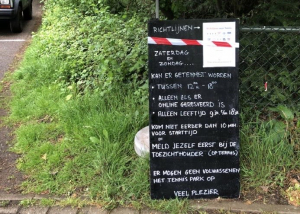 RICHTLIJNEN →
ZATERDAG
EN
ZONDAG....
KAN ER GETENNIST WORDEN
• TUSSEN 12⁰⁰ - 18⁰⁰
• ALLEEN ALS ER
ONLINE GERESERVEERD IS
• ALLEEN LEEFTIJD 9 JR t/m 18 JR
KOM NIET EERDER DAN 10 MIN
VOOR STARTTIJD
MELD JEZELF EERST BIJ DE
TOEZICHTHOUDER (OP TERRAS)
ER MOGEN GEEN VOLWASSENEN
HET TENNIS PARK OP
VEEL PLEZIER